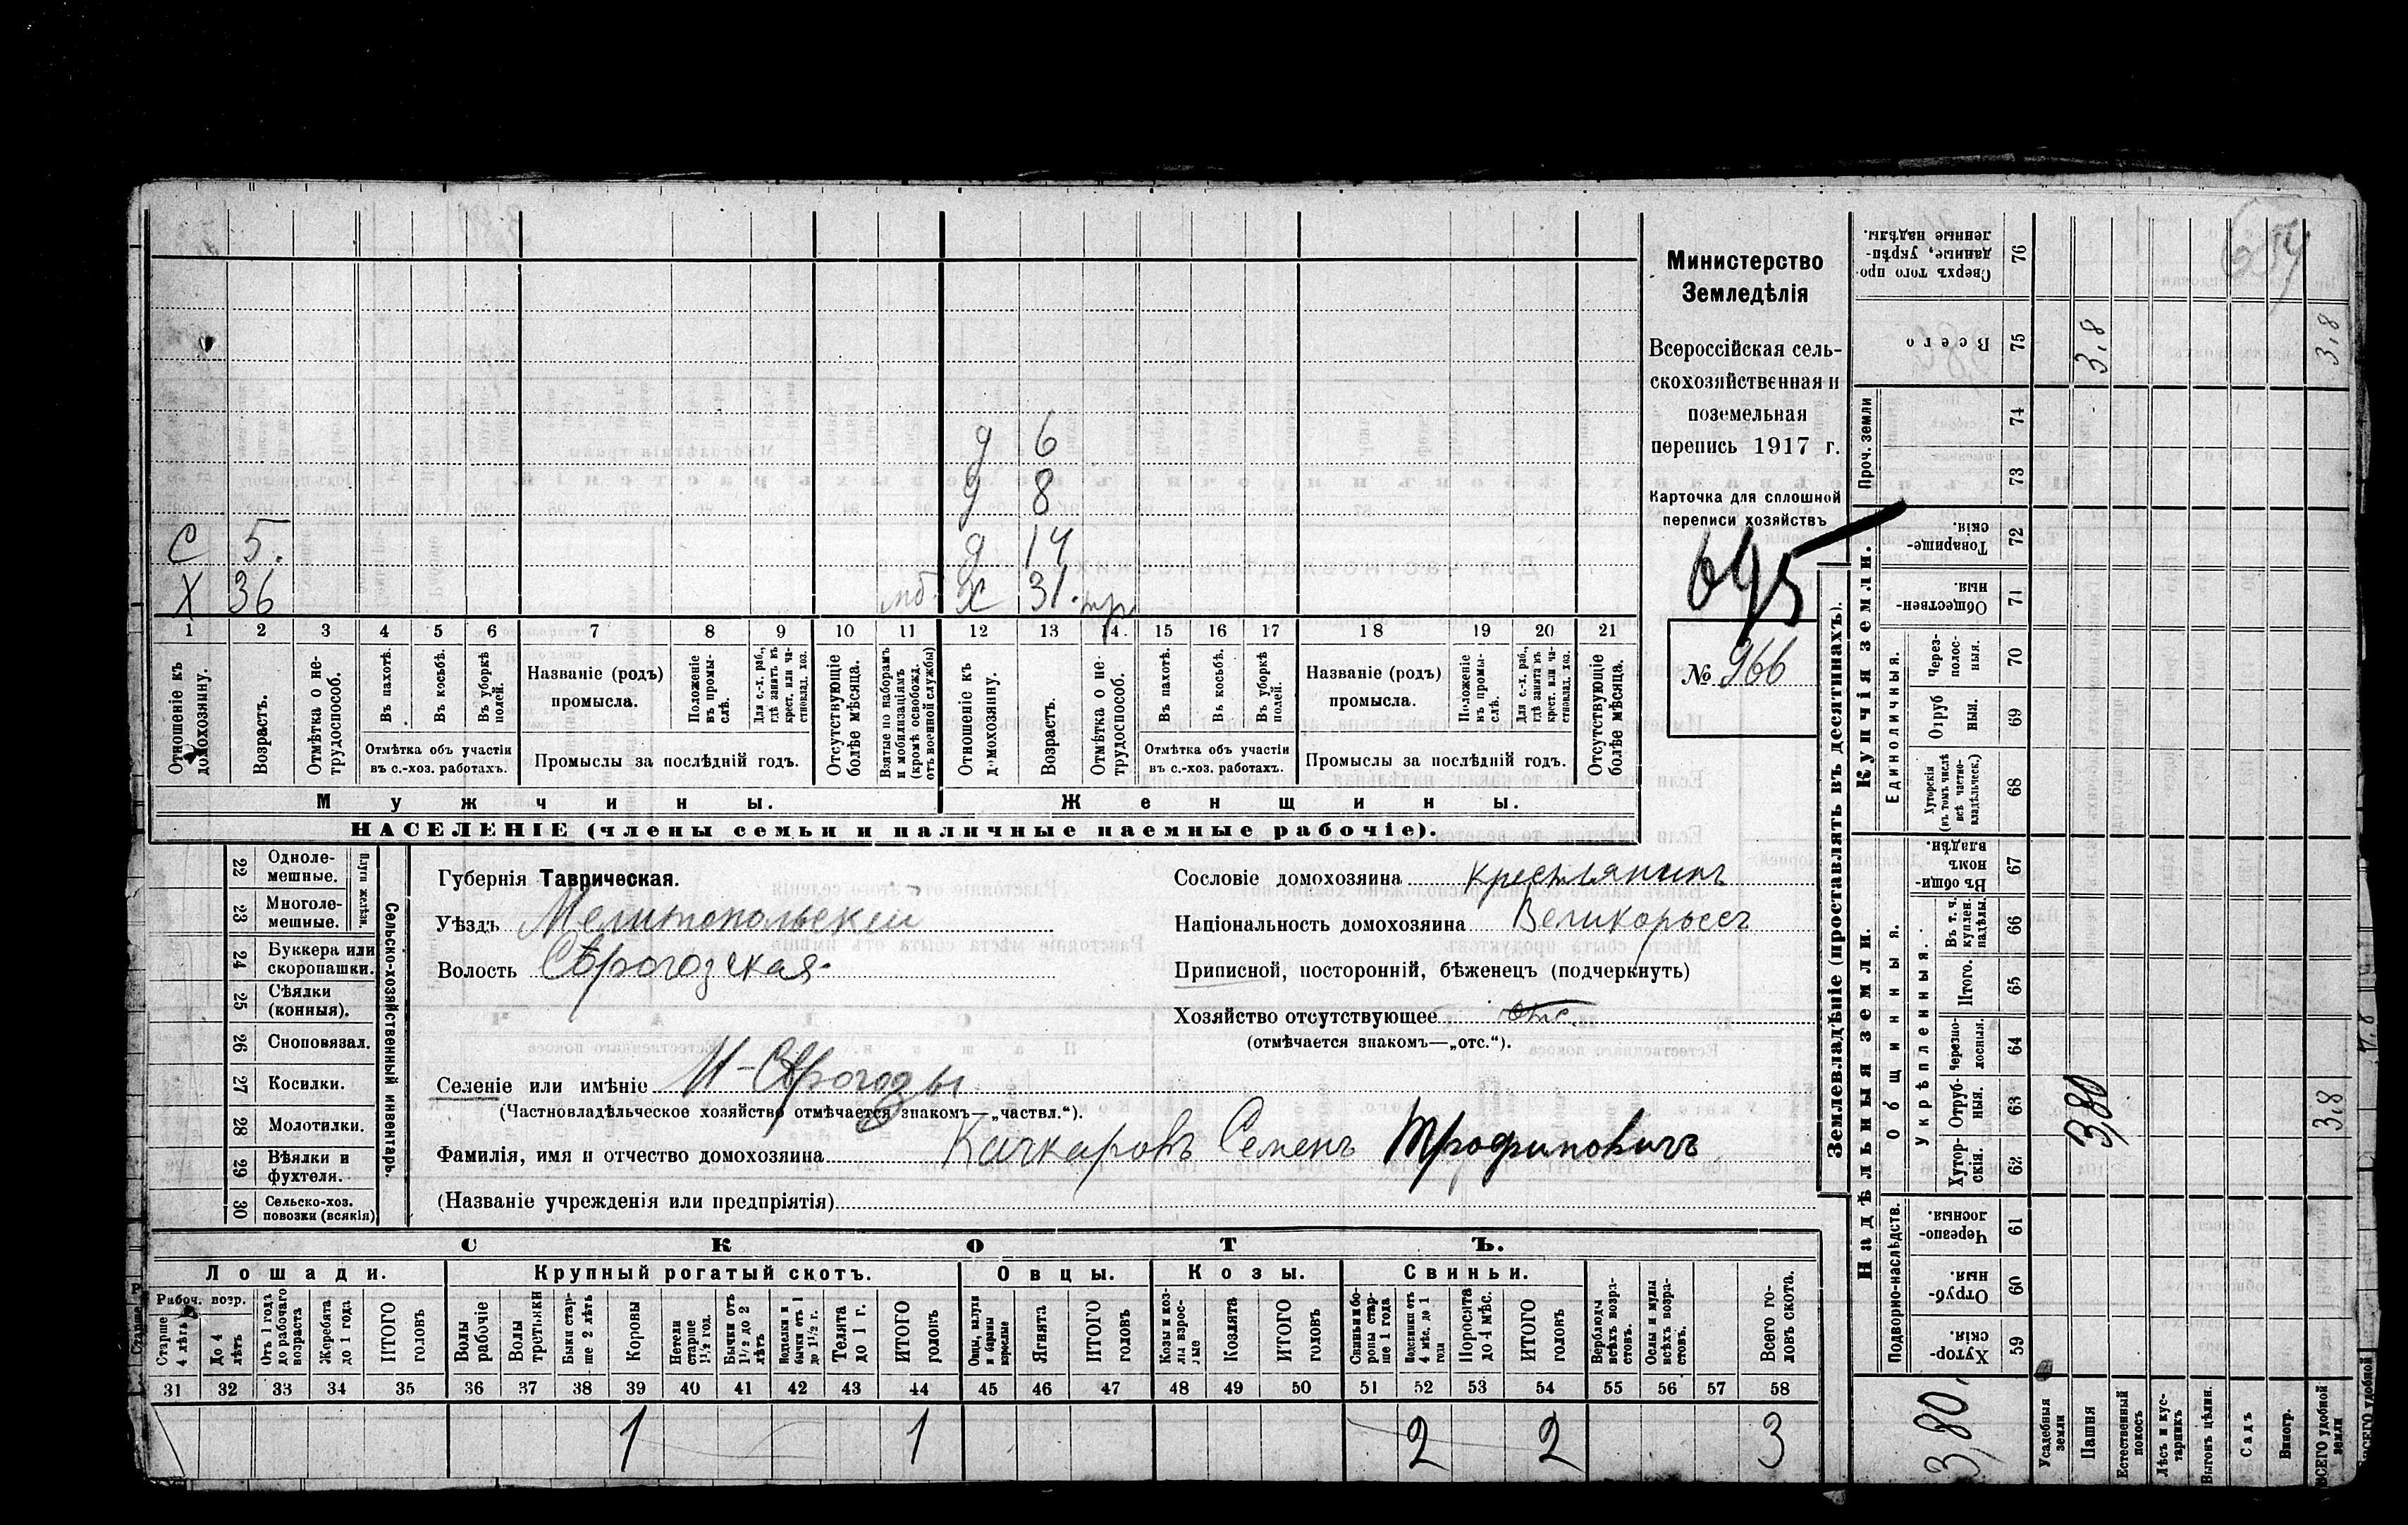 Министерство
Земледѣлія
Всероссійская сель-
скохозяйственная и
поземельная
перепись 1917 г.
Карточка для сплошной
переписи хозяйствъ
695
№ 966
д 6
д 8
С 5. д 14
Х 36 мб. Х 31. тр
1 2 3 4 5 6 7 8 9 10 11 12 13 14. 15 16 17 18 19 20 21
Отношеніе къ домохозяину.
Возрастъ.
Отмѣтка о не-трудоспособ.
Въ пахотѣ.
Въ косьбѣ.
Въ уборкѣ полей.
Отмѣтка объ участіи
въ с.-хоз. работахъ.
Названіе (родъ)
промысла.
Положеніе въ промы-слѣ.
Для с.-х. раб., гдѣ занятъ въ крест. или ча-стновлад. хоз.
Промыслы за послѣдній годъ.
Отсутствующіе болѣе мѣсяца.
Взятые по наборамъ и мобилизаціямъ (кромѣ освобожд. отъ военной службы)
Отношеніе къ домохозяину.
Возрастъ.
Отмѣтка о не-трудоспособ.
Въ пахотѣ.
Въ косьбѣ.
Въ уборкѣ полей.
Отмѣтка объ участіи
въ с.-хоз. работахъ.
Названіе (родъ)
промысла.
Положеніе въ промы-слѣ.
Для с.-х. раб., гдѣ занята въ крест. или ча-стновлад. хоз.
Промыслы за послѣдній годъ.
Отсутствующіе болѣе мѣсяца.
Мужчины. Женщины.
НАСЕЛЕНІЕ (члены семьи и наличные наемные рабочіе).
22 Одноле-мешные.
23 Многоле-мешные.
Плуги желѣзн.
24 Буккера или скоропашки.
25 Сѣялки (конныя).
26 Сноповязал.
27 Косилки.
28 Молотилки.
29 Вѣялки и фухтеля.
30 Сельско-хоз. повозки (всякія)
Сельско-хозяйственный инвентарь.
Губернія Таврическая.
Уѣздъ Мелитопольскій
Волость Сѣрогозская
Селеніе или имѣніе Н-Сѣрогозы
(Частновладѣльческое хозяйство отмѣчается знакомъ—„частвл.“).
Сословіе домохозяина крестьянинъ
Національность домохозяина Великороссъ
Приписной, посторонній, бѣженецъ (подчеркнуть)
Хозяйство отсутствующее отс.
(отмѣчается знакомъ—„отс.“).
Фамилія, имя и отчество домохозяина Качкаровъ Семенъ Трофимовичъ
(Названіе учрежденія или предпріятія)
СКОТЪ.
Лошади. Крупный рогатый скотъ. Овцы. Козы. Свиньи.
Рабоч. возр.
Старше 4 лѣтъ
До 4 лѣтъ
Отъ 1 года до рабочаго возраста
Жеребята до 1 года
ИТОГО головъ
Волы рабочіе
Волы третьяки
Быки стар-ше 2 лѣтъ
Коровы
Нетели старше 1½ год.
Бычки отъ 1½ до 2 лѣтъ
Телята до 1 г.
ИТОГО головъ
Овцы, валухи и бараны взрослые
Ягнята
ИТОГО головъ
Козы и коз-лы взрос-лые
Козлята
ИТОГО головъ
Свиньи и бо-ровы стар-ше 1 года
Подсвинки отъ 4 мѣс. до 1 года
Поросята до 4 мѣс.
ИТОГО головъ
Верблюды всѣхъ возра-стовъ.
Ослы и мулы всѣхъ возра-стовъ.
Всего го-ловъ скота.
31 32 33 34 35 36 37 38 39 40 41 42 43 44 45 46 47 48 49 50 51 52 53 54 55 56 57 58
1 1 2 2 3
Землевладѣніе (проставлять въ десятинахъ).
Надѣльныя земли. Купчія земли.
Подворно-наслѣдств.
Общинныя.
Укрѣпленныя.
Единоличныя.
Проч. земли
Хутор-скія. 59
Отруб-ныя. 60
Черезпо-лосныя. 61
Хутор-скія. 62
Отруб-ныя. 63
Черезпо-лосныя. 64
Итого. 65
Въ т. ч. куплен. надѣлы. 66
Въ общи-номъ владѣн. 67
Хуторскія (въ томъ числѣ всѣ частно-владѣльческ.) 68
Отруб ныя. 69
Через-полос-ныя. 70
Обществен-ныя 71
Товарище-скія. 72
73
74
Всего 75
Сверхъ того про данные, укрѣп-ленные надѣлы. 76
Усадебныя земли
Пашня
Естественный покосъ
Лѣсъ и кус-тарникъ
Выгонъ цѣлин.
Садъ
Виногр.
ВСЕГО удобной земли
3,80
3,80
3,8
3,8
3,8